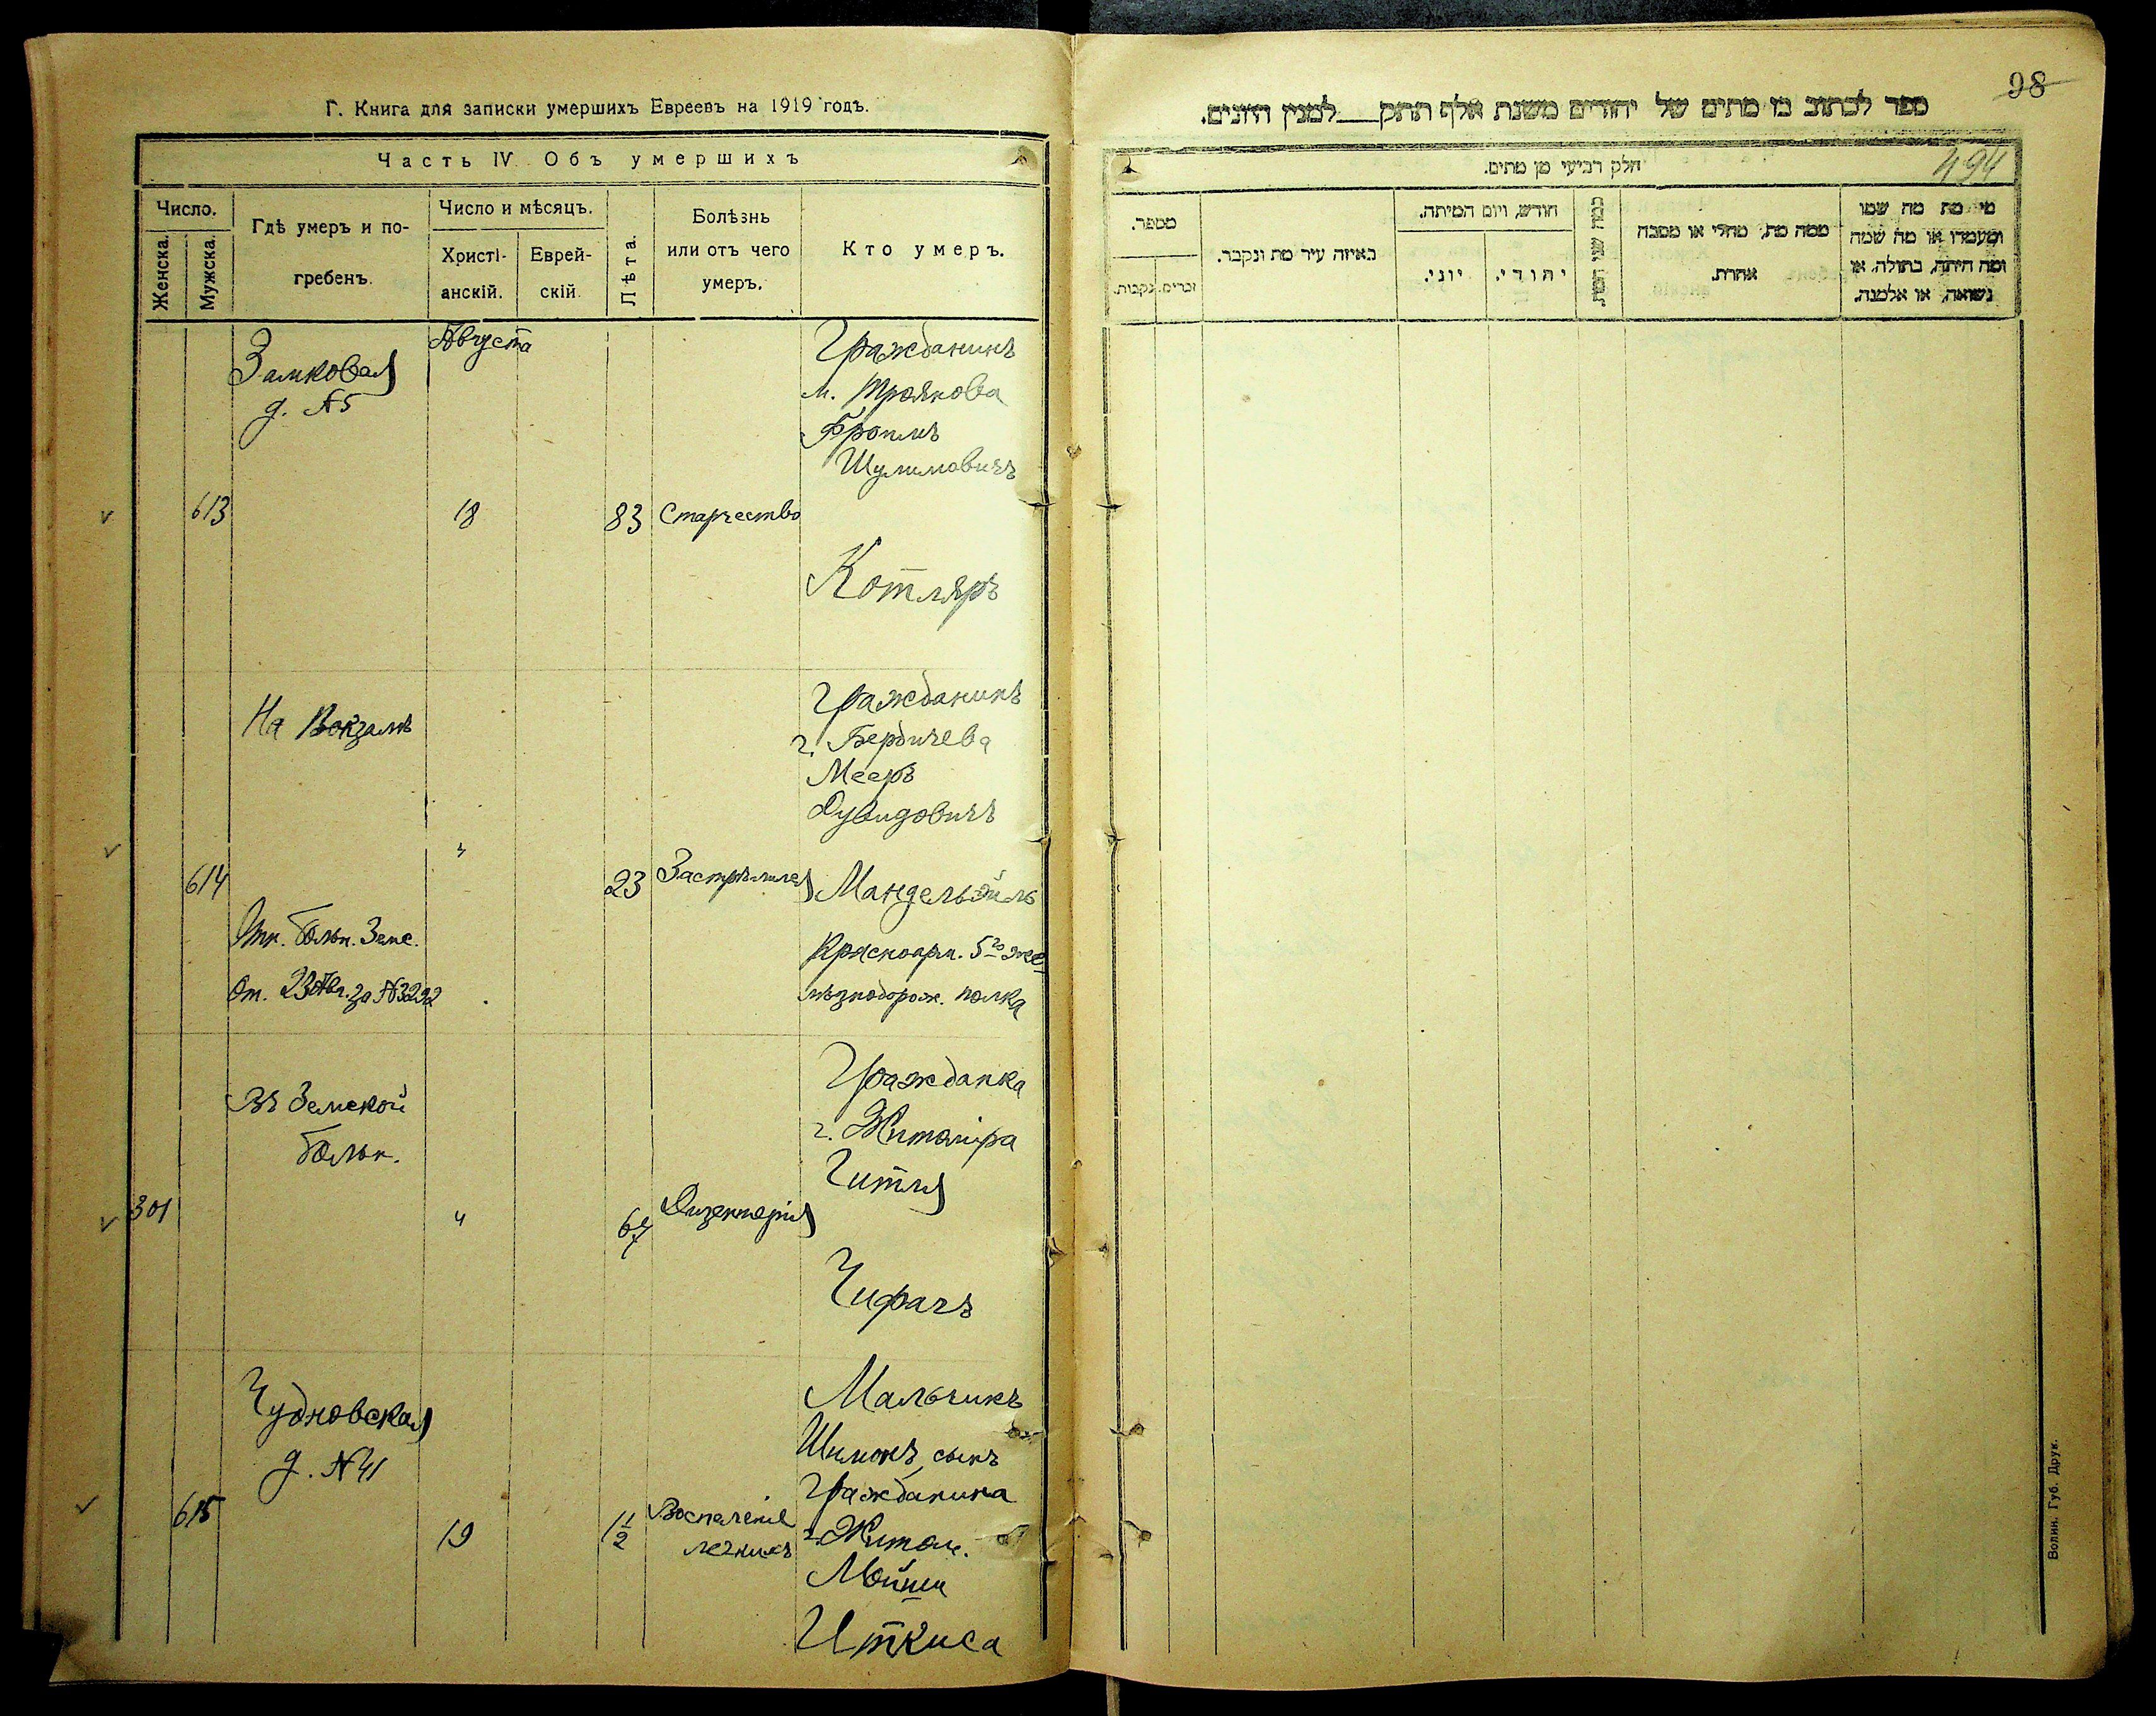 Г. Книга для записки умершихъ Евреевъ на 1919 годъ.
Часть IV. Объ умершихъ
Число.
Женска.
Мужска.
Гдѣ умеръ и по-
гребенъ.
Число и мѣсяцъ.
Христі-
анскій.
Еврей-
скій.
Лѣта.
Болѣзнь
или отъ чего
умеръ.
Кто умеръ.
Августа
Замковая
д. №5
613
18
83
Старчество
Гражданинъ
м. Троянова
Фроимъ
Шулимовичъ
Котляръ
На Вокзалѣ
614
"
23
Застрѣлился
Гражданинъ
г. Бердичева
Мееръ
Дувидовичъ
Мандельойль
Красноарм. 5го желѣ-
знодорож. полка
больн. Земс.
От. 23 Авг. за №3292
Въ Земской
больн.
301
"
67
Дизентерія
Гражданка
г. Житоміра
Гитля
Чифачъ
Чудновская
д. №41
615
19
1 1/2
Воспаленіе
легкихъ
Мальчикъ
Шимонъ, сынъ
Гражданина
г. Житом.
Мойши
Иткиса
98
ספר לכתוב בו מתים של יהודים משנת אלף תתק___למנין היונים.
494
חלק רביעי מן מתים.
מספר.
זכרים.
נקבות.
באיזה עיר מת ונקבר.
חודש, ויום המיתה.
יוני.
יהודי.
כמה שני המת
ממה מת, מחלי או מסבה
אחרת.
מי מת מה שמו
ומעמדו או מה שמה
ומה היתה, בתולה, או
נשואה, או אלמנה.
Волин. Губ. Друк.